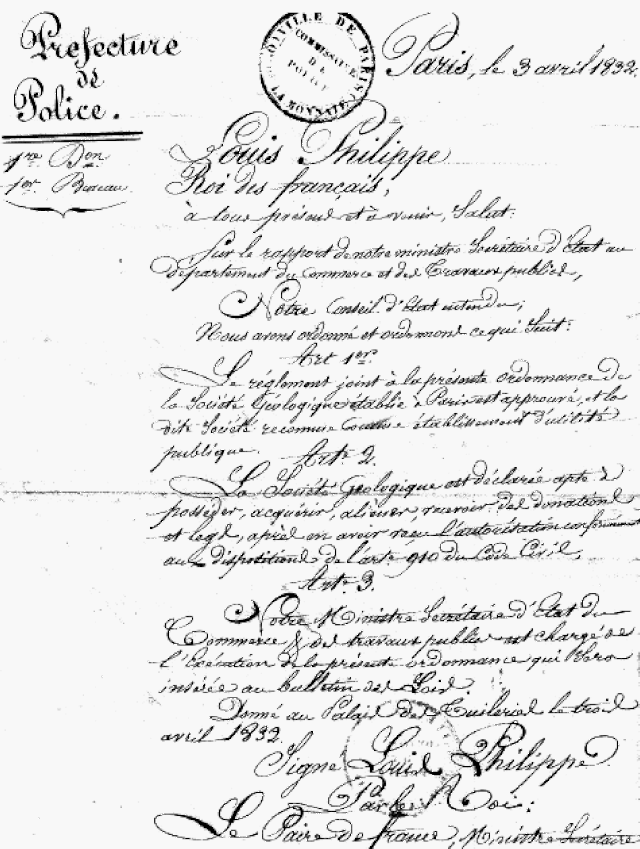 Préfecture
de
Police.
1re Don
1er Bureau
VILLE DE PARIS
COMMISSAIRE
DE
POLICE
LA MONNAIE
Paris, le 3 avril 1832.
Louis Philippe
Roi des français,
à tous présens et à venir, Salut.
Sur le rapport de notre ministre Secrétaire d'Etat au
département du Commerce et des Travaux publics,
Notre Conseil d'Etat entendu,
Nous avons ordonné et ordonnons ce qui Suit:
Art 1er.
Le réglement joint à la présente ordonnance de
la Société Géologique établie à Paris est approuvé, et la
dite Société reconnue Comme établissement d'utilité
publique.
Arte 2.
La Société Géologique est déclarée apte à
posséder, acquérir, aliéner, recevoir des donations
et legs, après en avoir reçu l'autorisation conformément
aux dispositions de l'arte 910 du Code Civil,
Arte 3.
Notre Ministre Secrétaire d'Etat du
Commerce & des travaux publics est chargé de
l'Exécution de la présente ordonnance qui sera
insérée au bulletin des Lois.
Donné au Palais des Tuileries le trois
avril 1832.
Signé Louis Philippe
Par le Roi:
Le Paire de france, Ministre Secrétaire